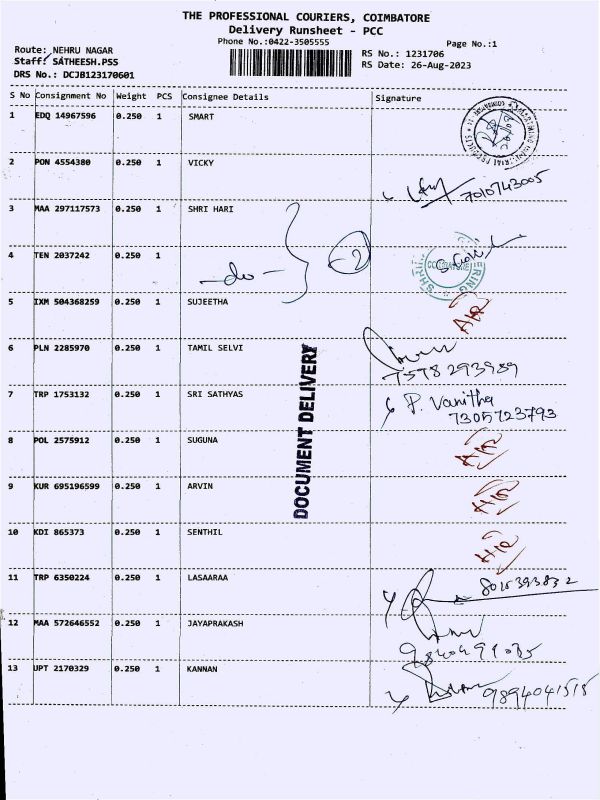 THE PROFESSIONAL COURIERS, COIMBATORE
Delivery Runsheet - PCC
Phone No.:0422-3505555
Page No.:1
Route: NEHRU NAGAR
RS No.: 1231706
Staff: SATHEESH.PSS
RS Date: 26-Aug-2023
DRS No.: DCJB123170601
S No Consignment No Weight PCS Consignee Details Signature
1 EDQ 14967596 0.250 1 SMART
2 PON 4554380 0.250 1 VICKY
7010743005
3 MAA 297117573 0.250 1 SHRI HARI
4 TEN 2037242 0.250 1 -do- 2
5 IXM 504368259 0.250 1 SUJEETHA
6 PLN 2285970 0.250 1 TAMIL SELVI
7378293989
7 TRP 1753132 0.250 1 SRI SATHYAS P. Vanitha
7305723793
8 POL 2575912 0.250 1 SUGUNA
9 KUR 695196599 0.250 1 ARVIN
10 KDI 865373 0.250 1 SENTHIL
11 TRP 6350224 0.250 1 LASAARAA
12 MAA 572646552 0.250 1 JAYAPRAKASH
13 UPT 2170329 0.250 1 KANNAN 9894041515
DOCUMENT DELIVERY